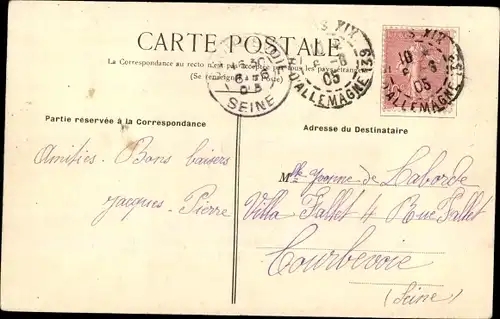 CARTE POSTALE
La Correspondance au recto n'est pas acceptée par tous les pays étrangers
(Se renseigner à la Poste)
SEINE
PARIS XIX
10
6
05
R. D'ALLEMAGNE 139
PARIS XIX
10
6
05
R. D'ALLEMAGNE 139
Partie reservée à la Correspondance
Adresse du Destinataire
Amitiés - Bons baisers
Jacques - Pierre
Mlle Yvonne de Laborde
Villa Fallet 4 Rue Fallet
Courbevoie
(Seine)